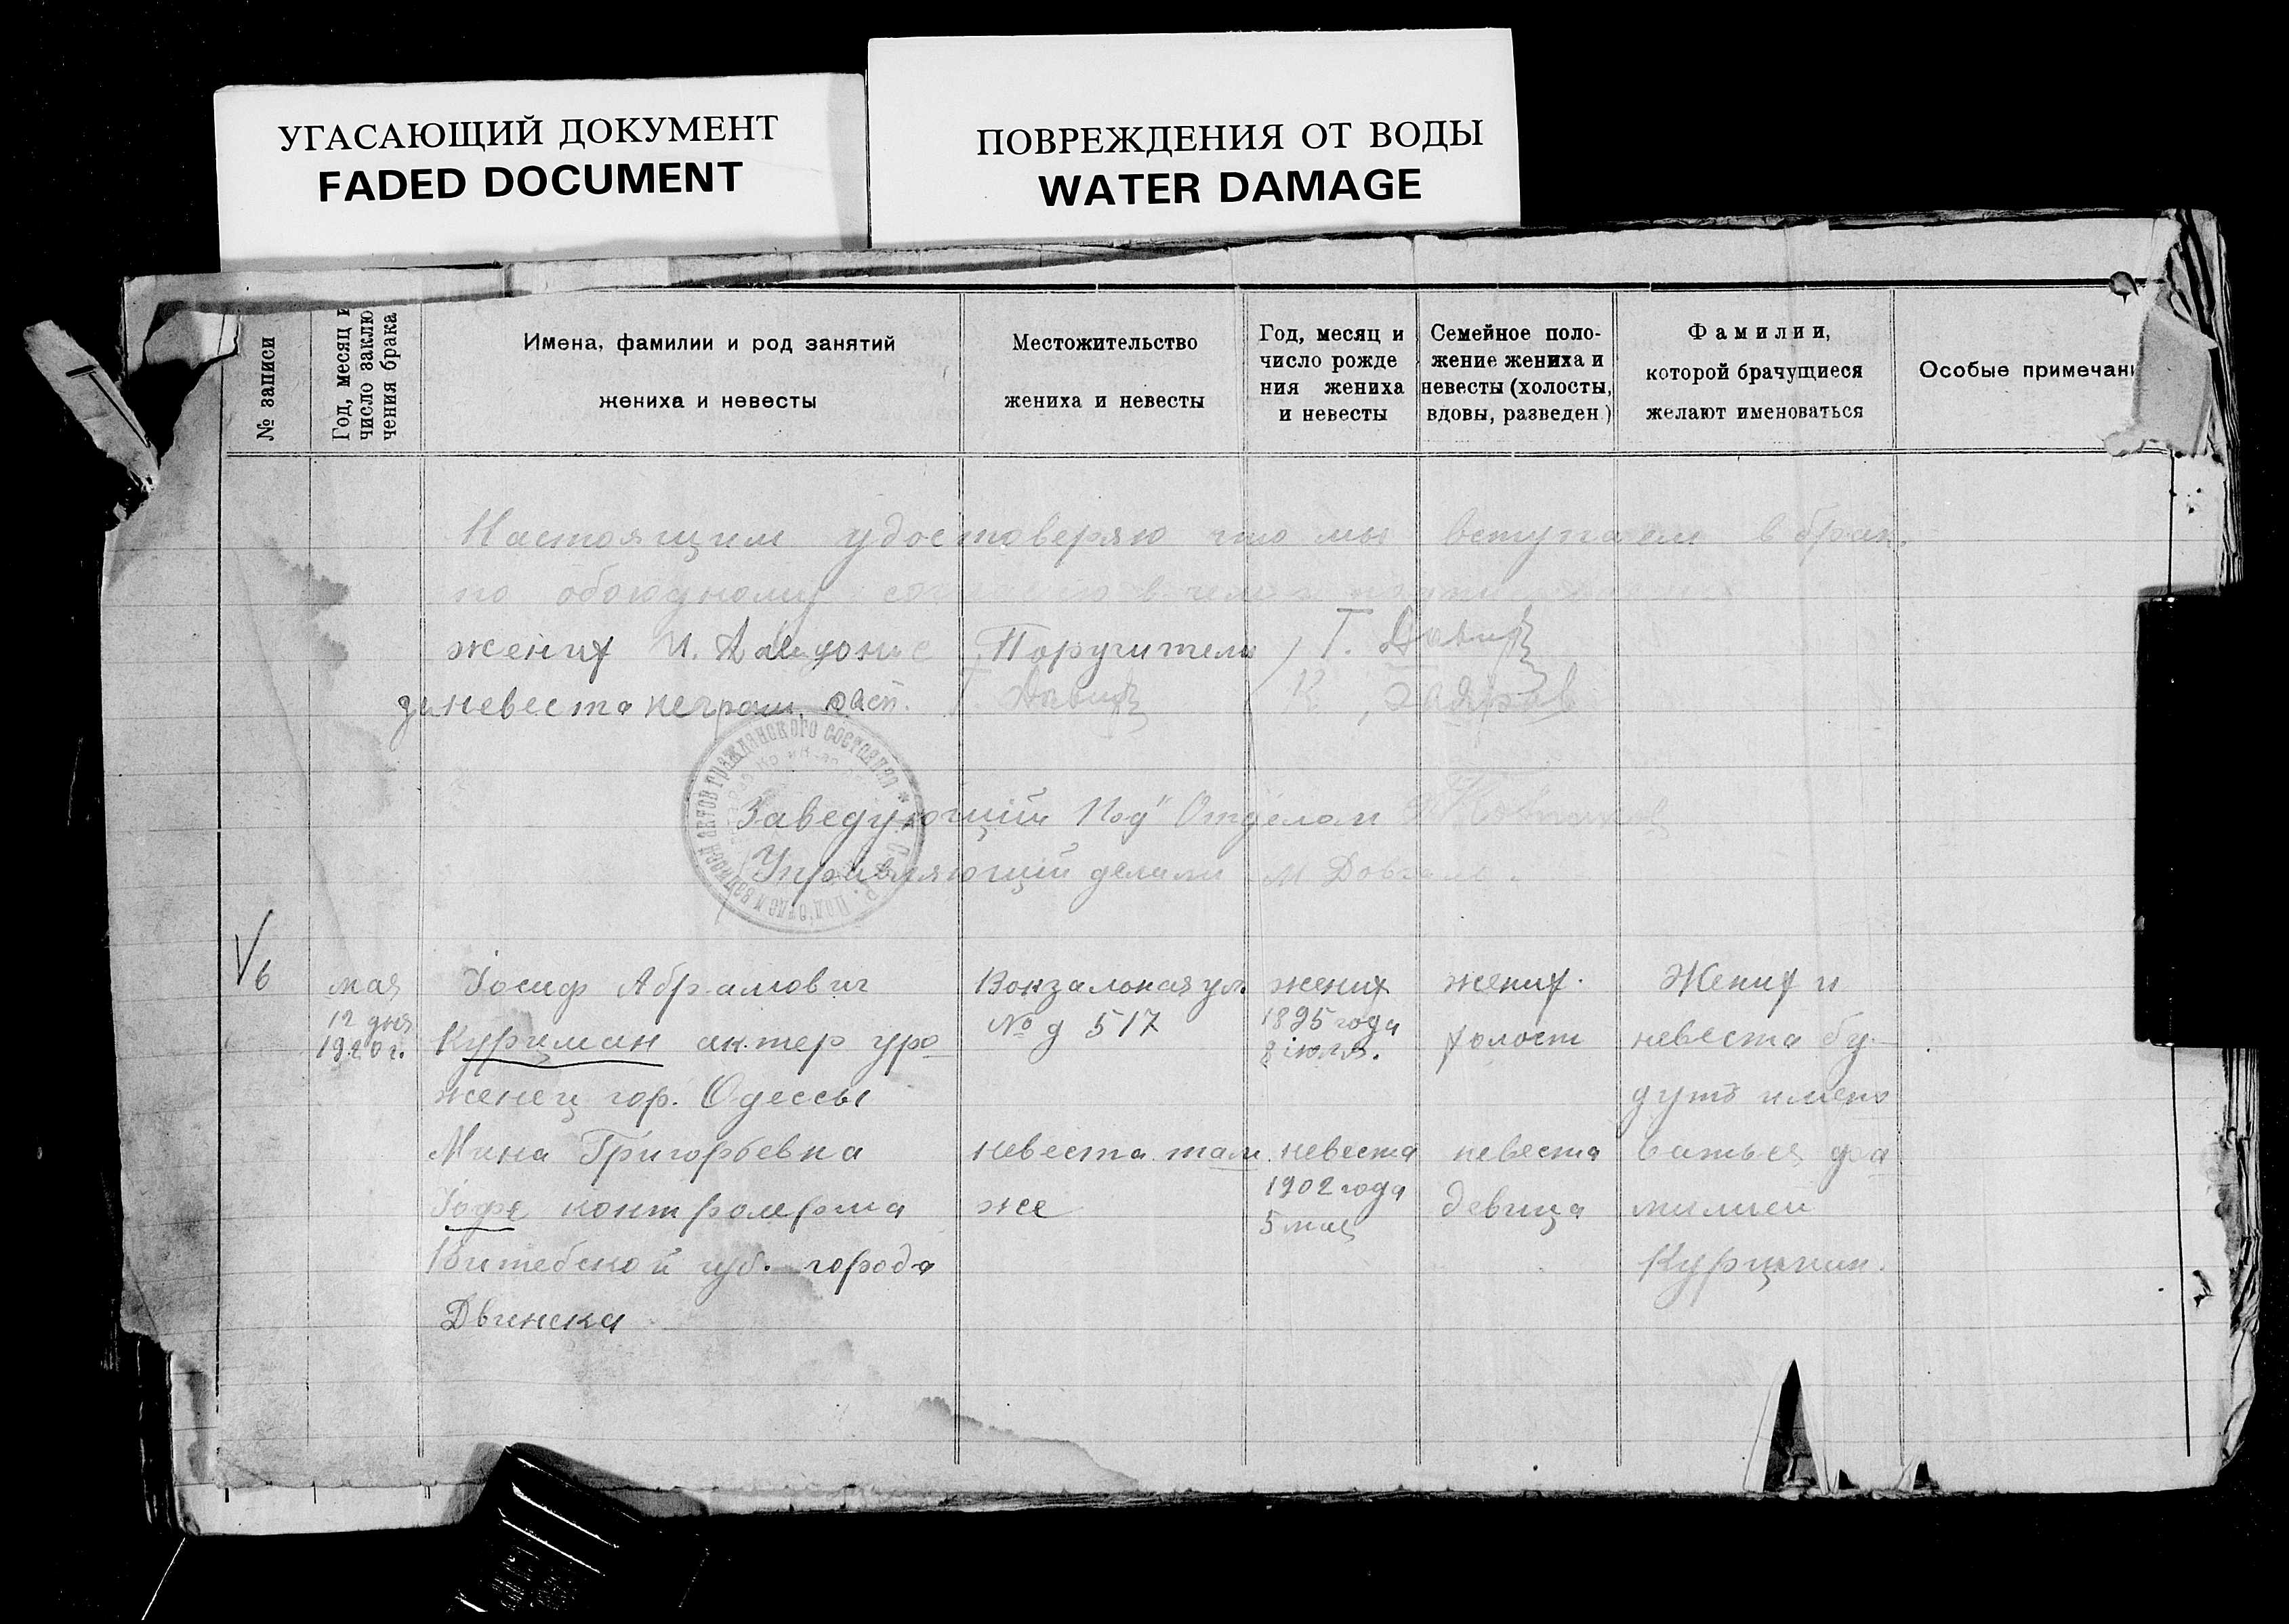 УГАСАЮЩИЙ ДОКУМЕНТ
FADED DOCUMENT
ПОВРЕЖДЕНИЯ ОТ ВОДЫ
WATER DAMAGE
№ записи
Год, месяц и
число заклю
чения брака
Имена, фамилии и род занятий
жениха и невесты
Местожительство
жениха и невесты
Год, месяц и
число рожде
ния жениха
и невесты
Семейное поло-
жение жениха и
невесты (холосты,
вдовы, разведен)
Фамилии,
которой брачущиеся
желают именоваться
Особые примечани
Настоящим удостоверяю что мы вступаем в брак
по обоюдному в чем и
жених И. Поручители Г. Давид
за невеста неграм. расп. Г. Давид К.
актов гражданского состояния
Заведующий Под"Отделом
Управляющий делами М Довгало.
6
мая
12 дня
1920 г.
Іосиф Абрамович
Курцман актер уро
женец гор. Одессы
Мина Григорьевна
Іофе контролерша
Витебской губ. города
Двинска
Вокзальная ул.
№ д 517
невеста там
же
жених
1895 года
8 июля.
невеста
1902 года
5 мая
жених.
холост
невеста
девица
Жених и
невеста бу-
дутъ имено
ваться фа
милией
Курцман.